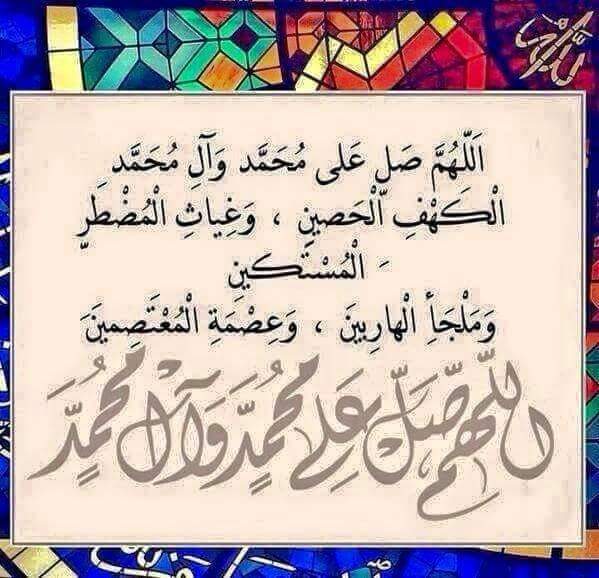 اَللّٰهُمَّ صَلِ عَلى مُحَمَّد وَآلِ مُحَمَّد
الْكَهْفِ الْحَصينِ ، وَغِياثِ الْمُضْطَرِّ
الْمُسْتَكينِ
وَمَلْجَأِ الْهارِبينَ ، وَعِصْمَةِ الْمُعْتَصِمينَ
اللّٰهُمَّ صَلِّ عَلى مُحَمَّدٍ وَآلِ مُحَمَّدٍ